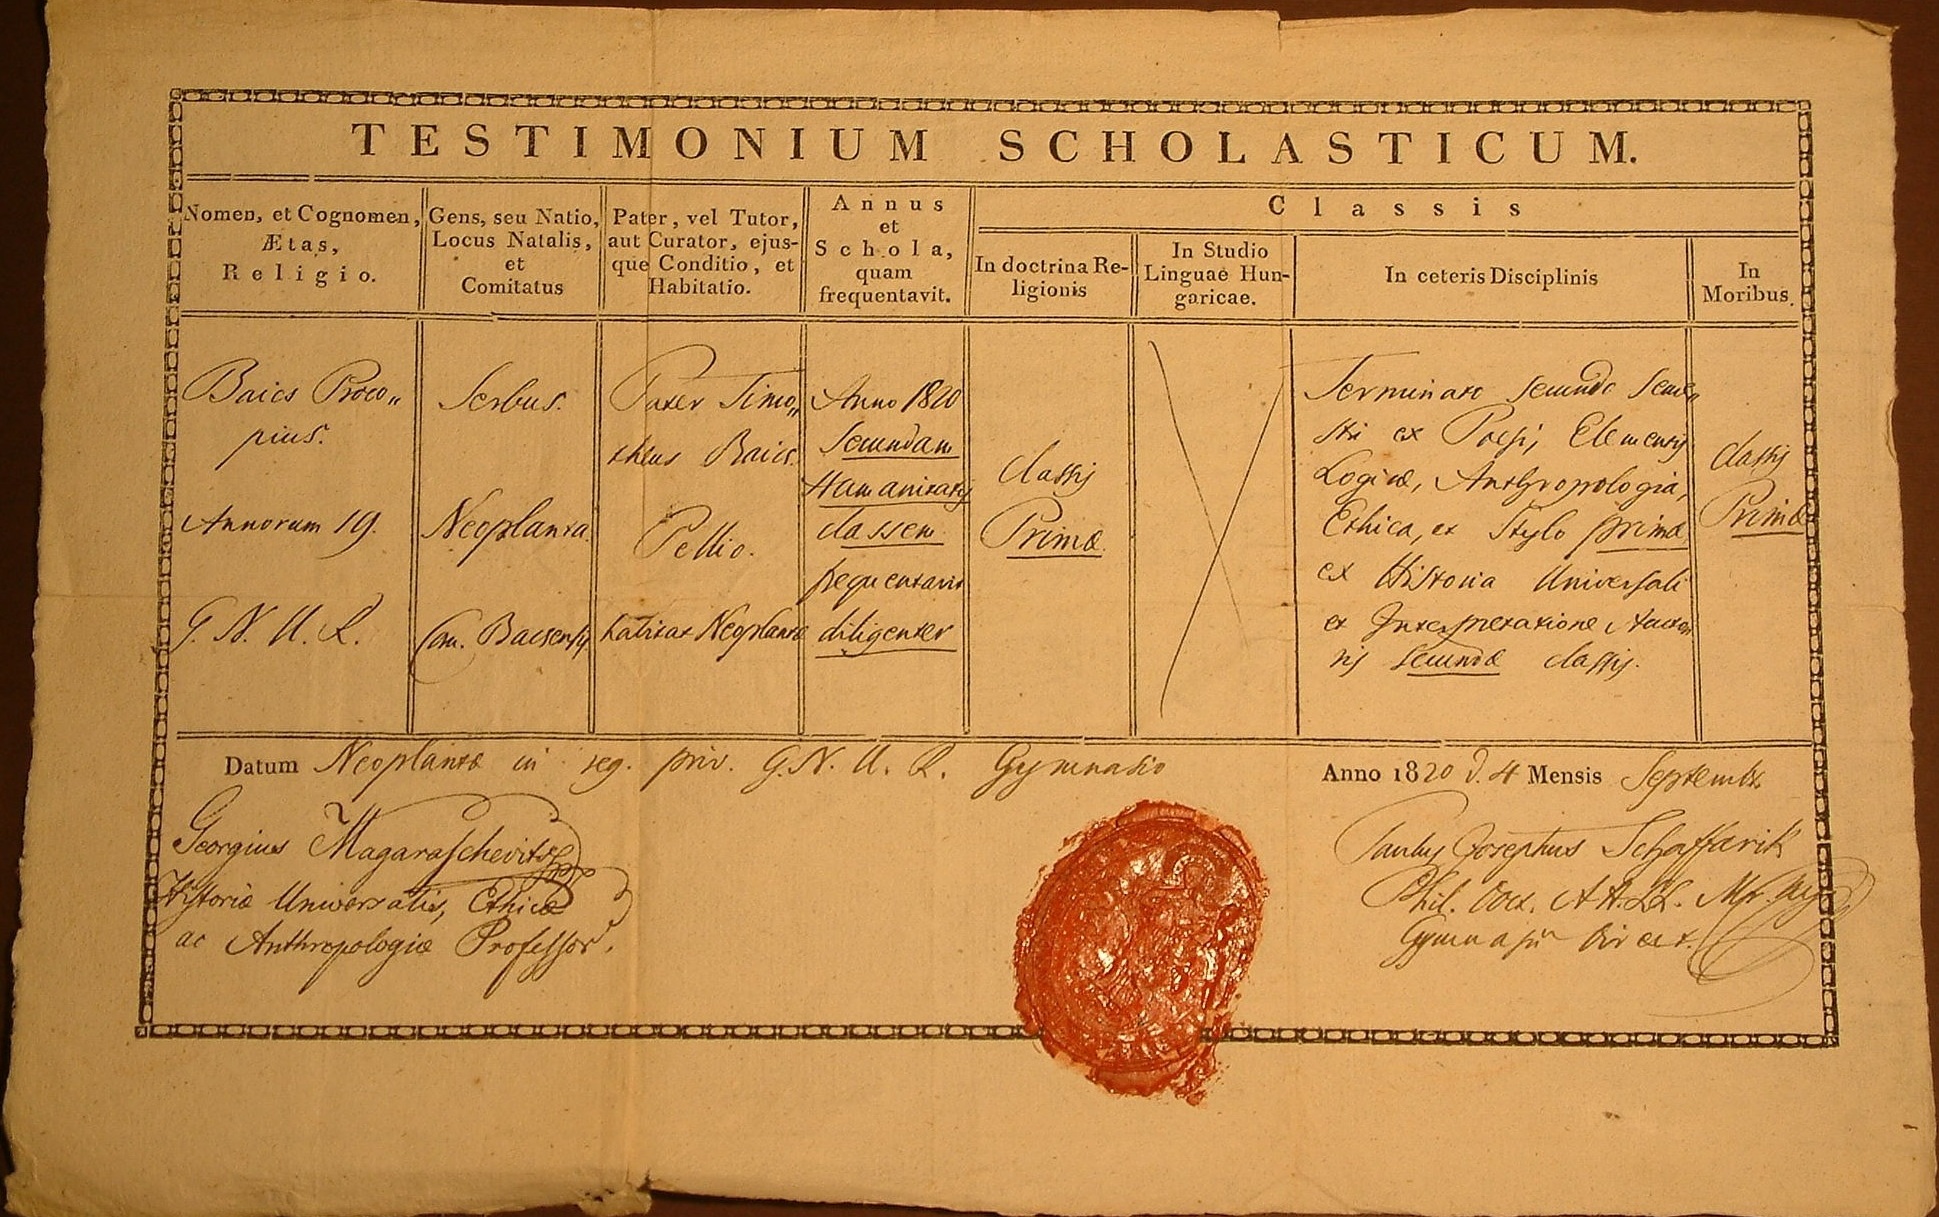 TESTIMONIUM SCHOLASTICUM.
Nomen, et Cognomen,
Ætas,
Religio.
Gens, seu Natio,
Locus Natalis,
et
Comitatus
Pater, vel Tutor,
aut Curator, ejus-
que Conditio, et
Habitatio.
Annus
et
Schola,
quam
frequentavit.
Classis
In doctrina Re-
ligionis
In Studio
Linguae Hun-
garicae.
In ceteris Disciplinis
In
Moribus.
Baics Proco„
pius.
Annorum 19.
G. N. U. R.
Serbus.
Neoplanta.
Com. Bacsensis
Pater Timo„
theus Baics.
Pellio.
habitat Neoplantæ
Anno 1820
Secundam
Humanitatis
classem
frequentavit
diligenter
classis
Primæ.
Terminato secundo Seme„
stri ex Poesi, Elementis
Logicæ, Anthropologia,
Ethica, et Stylo primæ
ex Historia Universali
et Interpretatione Aucto„
ris secundæ classis.
classis
Primæ
Datum Neoplantæ in reg. priv. G. N. U. R. Gymnasio
Anno 1820 d. 4 Mensis Septembr.
Georgius Magaraschevits
Historiæ Universalis, Ethicæ
ac Anthropologiæ Professor.
Paulus Josephus Schaffarik
Phil. Doct. AA.LL. Mr.
Gymnasii Direct.